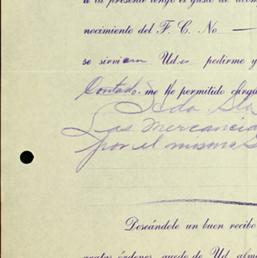 a la presente tengo el gusto de acom
nocimiento del F. C. No
se sirvieron Uds. pedirme y
Contado me he permitido carga
Las Mercancia
por el mismo
Deseándole un buen recibo
gratas órdenes, quedo de Ud. afmo